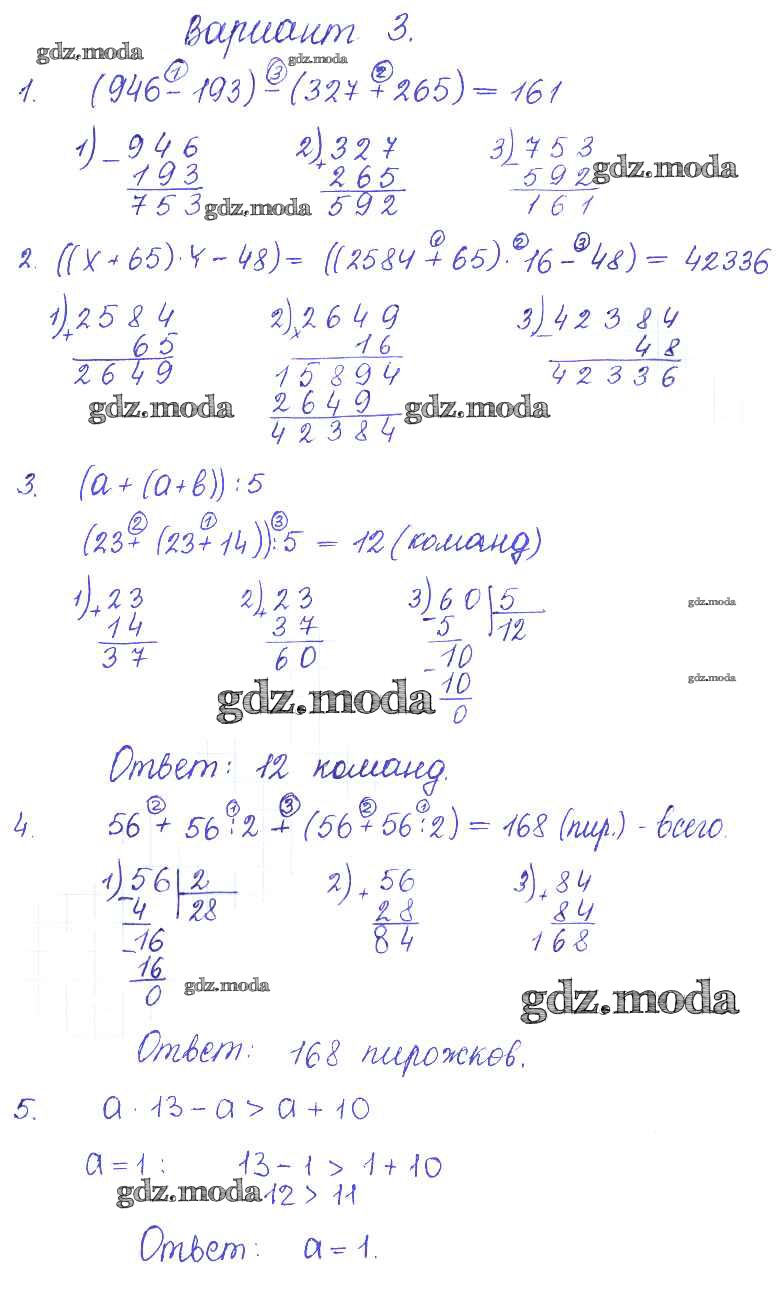 Вариант 3.
gdz.moda
gdz.moda
1. (946 - 193) - (327 + 265) = 161
1) - 946 2) + 327 3) - 753
193 265 592
753 592 161
gdz.moda
gdz.moda
2. ((x + 65) · y - 48) = ((2584 + 65) · 16 - 48) = 42336
1) + 2584 2) × 2649 3) - 42384
65 16 48
2649 15894 42336
2649
42384
gdz.moda gdz.moda
3. (a + (a + b)) : 5
(23 + (23 + 14)) : 5 = 12 (команд)
1) + 23 2) + 23 3) 60 | 5
14 37 - 5 12
37 60 - 10
10
0
gdz.moda
gdz.moda
gdz.moda
Ответ: 12 команд.
4. 56 + 56 : 2 + (56 + 56 : 2) = 168 (пир.) - всего.
1) 56 | 2 2) + 56 3) + 84
- 4 28 28 84
- 16 84 168
16
0
gdz.moda
gdz.moda
Ответ: 168 пирожков.
5. a · 13 - a > a + 10
a = 1 : 13 - 1 > 1 + 10
gdz.moda 12 > 11
Ответ: a = 1.